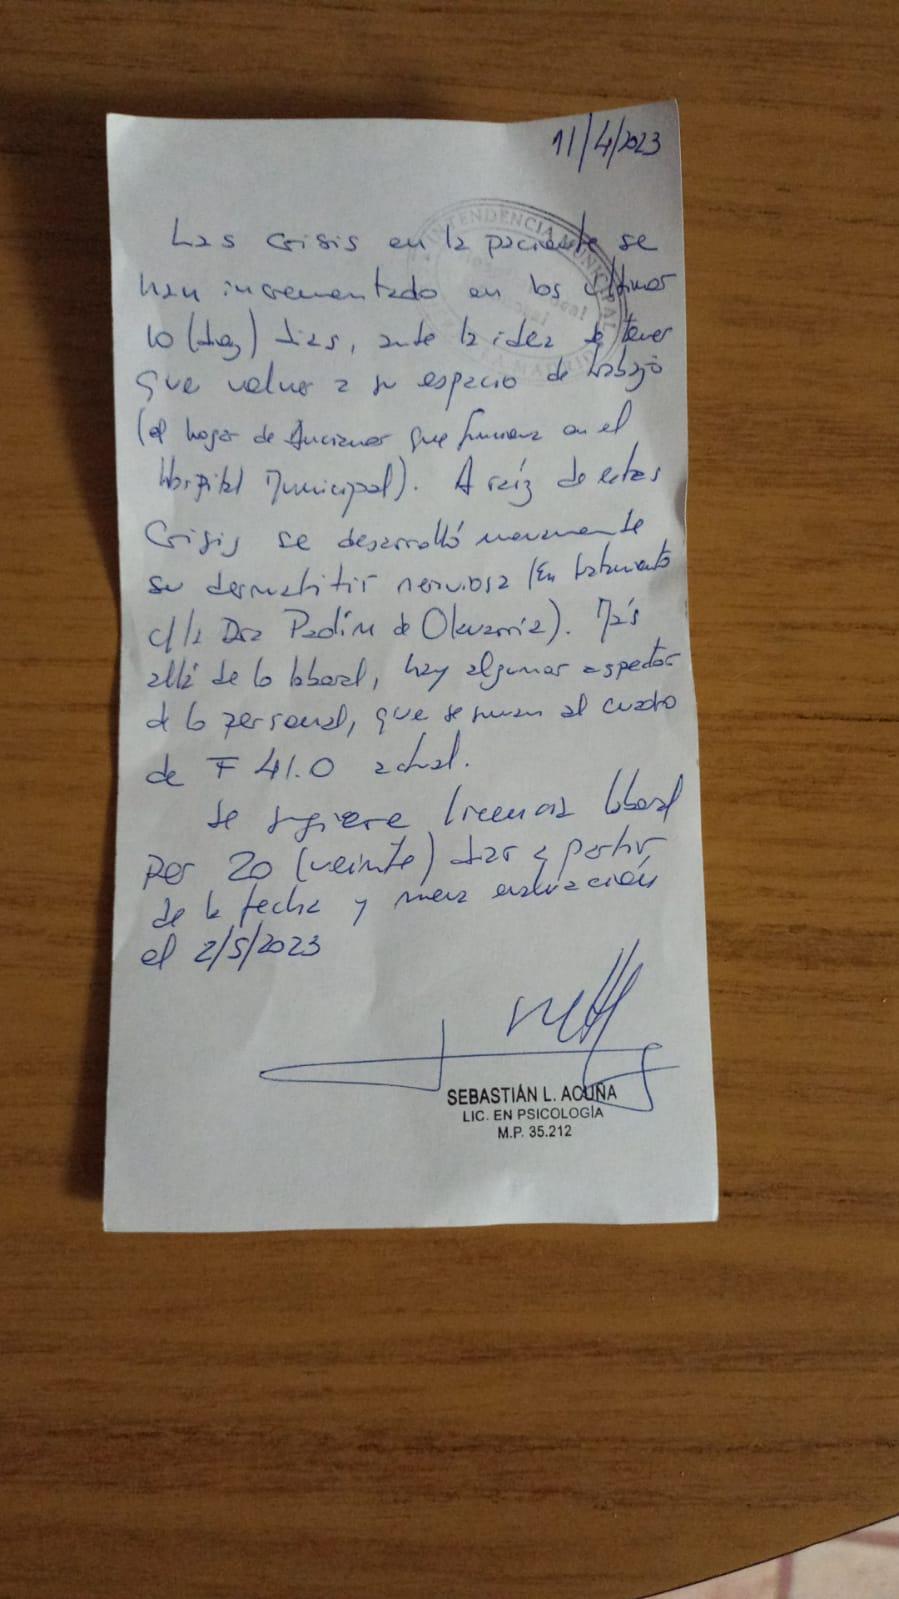 11/4/2023
INTENDENCIA MUNICIPAL
Las crisis en la paciente se
han incrementado en los últimos
10 (diez) días, ante la idea de tener
que volver a su espacio de trabajo
(el hogar de Ancianos que funciona en el
Hospital Municipal). A raíz de estas
crisis se desarrolló nuevamente
su dermatitis nerviosa (En tratamiento
c/la Dra de Olavarría). Más
allá de lo laboral, hay algunos aspectos
de lo personal, que se suman al cuadro
de F 41.0 actual.
Se sugiere licencia laboral
por 20 (veinte) días a partir
de la fecha y nueva evaluación
el 2/5/2023
SEBASTIÁN L. ACUÑA
LIC. EN PSICOLOGÍA
M.P. 35.212